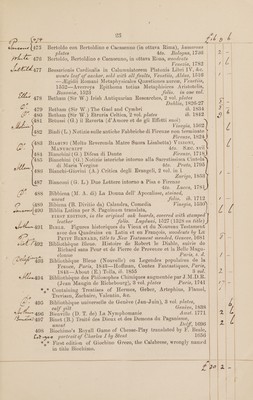 23
475 Bertoldo con Bertoldino e Cacasenno (in ottava Rima), humorous
plates 4to. Bologna, 1736
476 Bertoldo, Bertoldino e Cacasenno, in ottava Rima, morocco
Venezia, 1782
477 Bessarionis Cardinalis in Calumniatorem Platonis Libri IV, &c.
wants leaf of anchor, sold with all faults, Venetiis, Aldus, 1516
—Egidii Romani Metaphysicales Quæstiones aureæ, Venetiis,
1552—Averroys Epithoma totius Metaphysices Aristotelis,
Bononiæ, 1523 folio. in one vol.
478 Betham (Sir W.) Irish Antiquarian Researches, 2 vol. plates
Dublin, 1826-27
479 Betham (Sir W.) The Gael and Cymbri ib. 1834
480 Betham (Sir W.) Etruria Celtica, 2 vol. plates ib. 1842
481 Bettussi (G.) il Raverta (d'Amore et de gli Effetti suoi)
Vinegia, 1562
482 Biadi (L.) Notizie sulle antiche Fabbriche di Firenze non terminate
Firenze, 1824
483 BIANCHI (Molto Reverenda Maire Suora Limbania) VISIONI,
MANUSCRIPT 4to. SÆC. XVI
484 Bianchini (G.) Difesa di Dante Firenze, 1718
485 Bianchini (G.) Notizie istoriche intorno alla Sacratissima Cintola
di Maria Vergine 4to. Prato, 1795
486 Bianchi-Giovini (A.) Critica degli Evangeli, 2 vol. in 1
Zurigo, 1853
487 Bianconi (G. L.) Due Lettere intorno a Pisa e Firenze
4to. Lucca, 1781
488 Bibiena (M. A. di) La Donna dell' Apostleon, stained,
uncut folio. ib. 1713
489 Bibiena (B. Divitio da) Calandra, Comedia Vinegia, 1530
490 Biblia Latina per S. Pagninum translata,
FIRST EDITION, in the original oak boards, covered with stamped
leather folio. Lugduni, 1527 (1528 on title)
491 BIBLE. Figures historiques du Vieux et du Nouveau Testament
avec des Quatrains en Latin et en François, woodcuts by LE
PETIT BERNARD, title to New Testament mended, Geneve, 1681
492 Bibliothèque Bleue. Histoire de Robert le Diable, suivie de
Richard sans Peur et de Pierre de Provence et la Belle Maguelonne
Paris, s. d.
493 Bibliothèque Bleue (Nouvelle) ou Légendes populaires de la
France, Paris, 1842—Hoffman, Contes Fantastiques, Paris,
1843—About (E.) Tolla, ib. 1855 3 vol.
494 Bibliothèque des Philosophes Chimiques augmentée par J. M. D. R.
(Jean Maugin de Richebourg), 3 vol. plates Paris, 1741
*** Containing Treatises of Hermes, Geber, Artephius, Flamel,
Trevisan, Zachaire, Valentin, &c.
495 Bibliothèque universelle de Genève (Jan-Juin), 8 vol. plates,
calf gilt Genève, 1838
496 Bienville (D. T. de) La Nymphomanie Amst. 1771
497 Binet (B.) Traité des Dieux et des Demons du Paganisme,
uncut Delff, 1696
498 Biochimo's Royall Game of Chesse-Play translated by F. Beale,
portrait of Charles I by Stent 1656
*** First edition of Giachino Greco, the Calabrese, wrongly named
in title Biochimo.